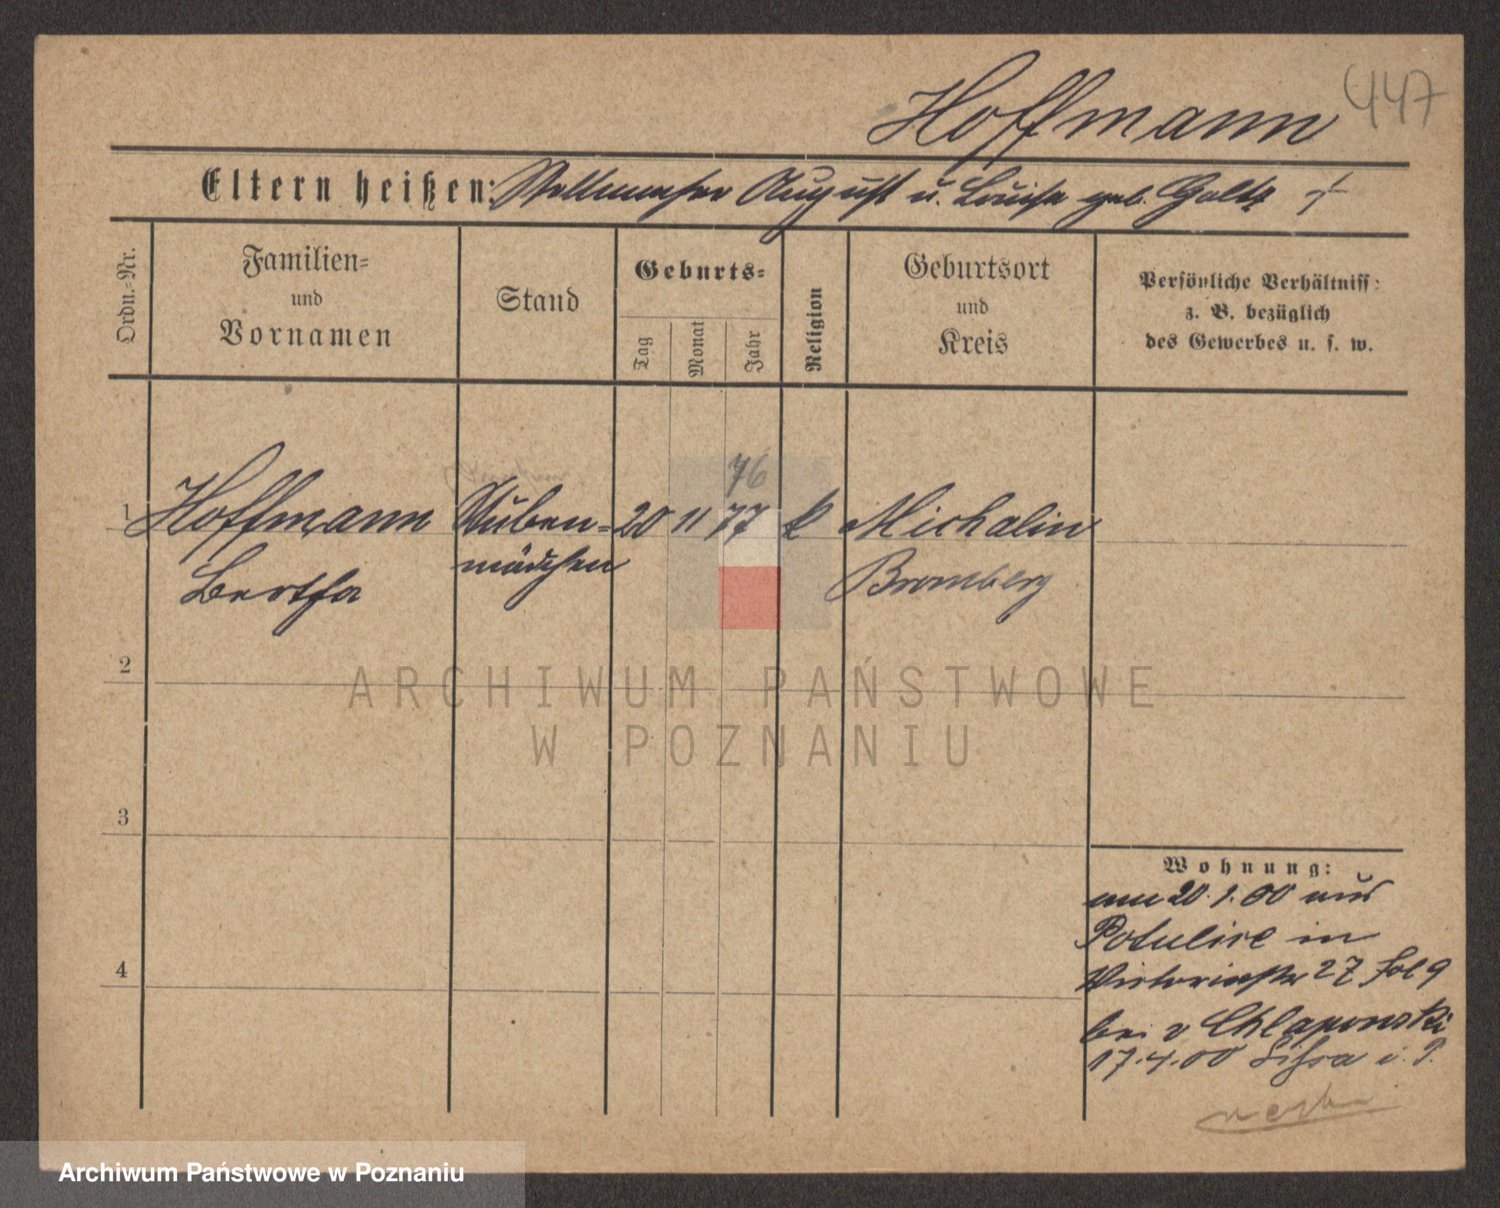 Hoffmann 447
Eltern heißen: Stellmacher August u. Louise geb. Goltz +
Ordn.-Nr.
Familien-
und
Vornamen
Stand
Geburts-
Tag
Monat
Jahr
Religion
Geburtsort
und
Kreis
Persönliche Verhältniss:
z. B. bezüglich
des Gewerbes u. s. w.
76
1 Hoffmann Stuben= 20 11 77 k Michalin
Bertha mädchen Bromberg
2
ARCHIWUM PAŃSTWOWE
W POZNANIU
3
4
Wohnung:
am 20.1.00 aus
Potulice in
Victoriastr 27 Fol 9
bei v Chlapowski
17.4.00 Lissa i. P.
Archiwum Państwowe w Poznaniu